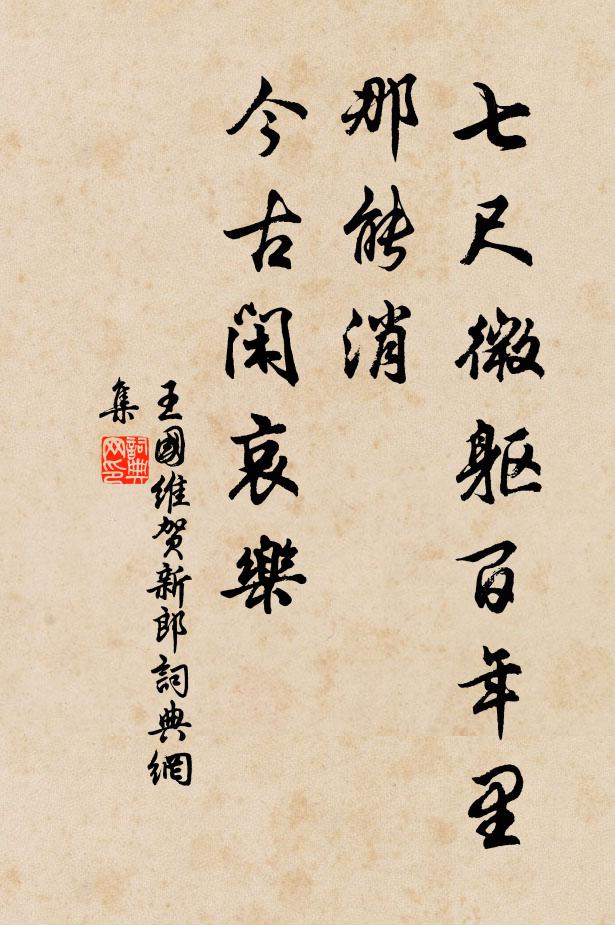 七尺微躯百年里
那能消
今古闲哀樂
王國維贺新郎詞典網
集
詞典
网印